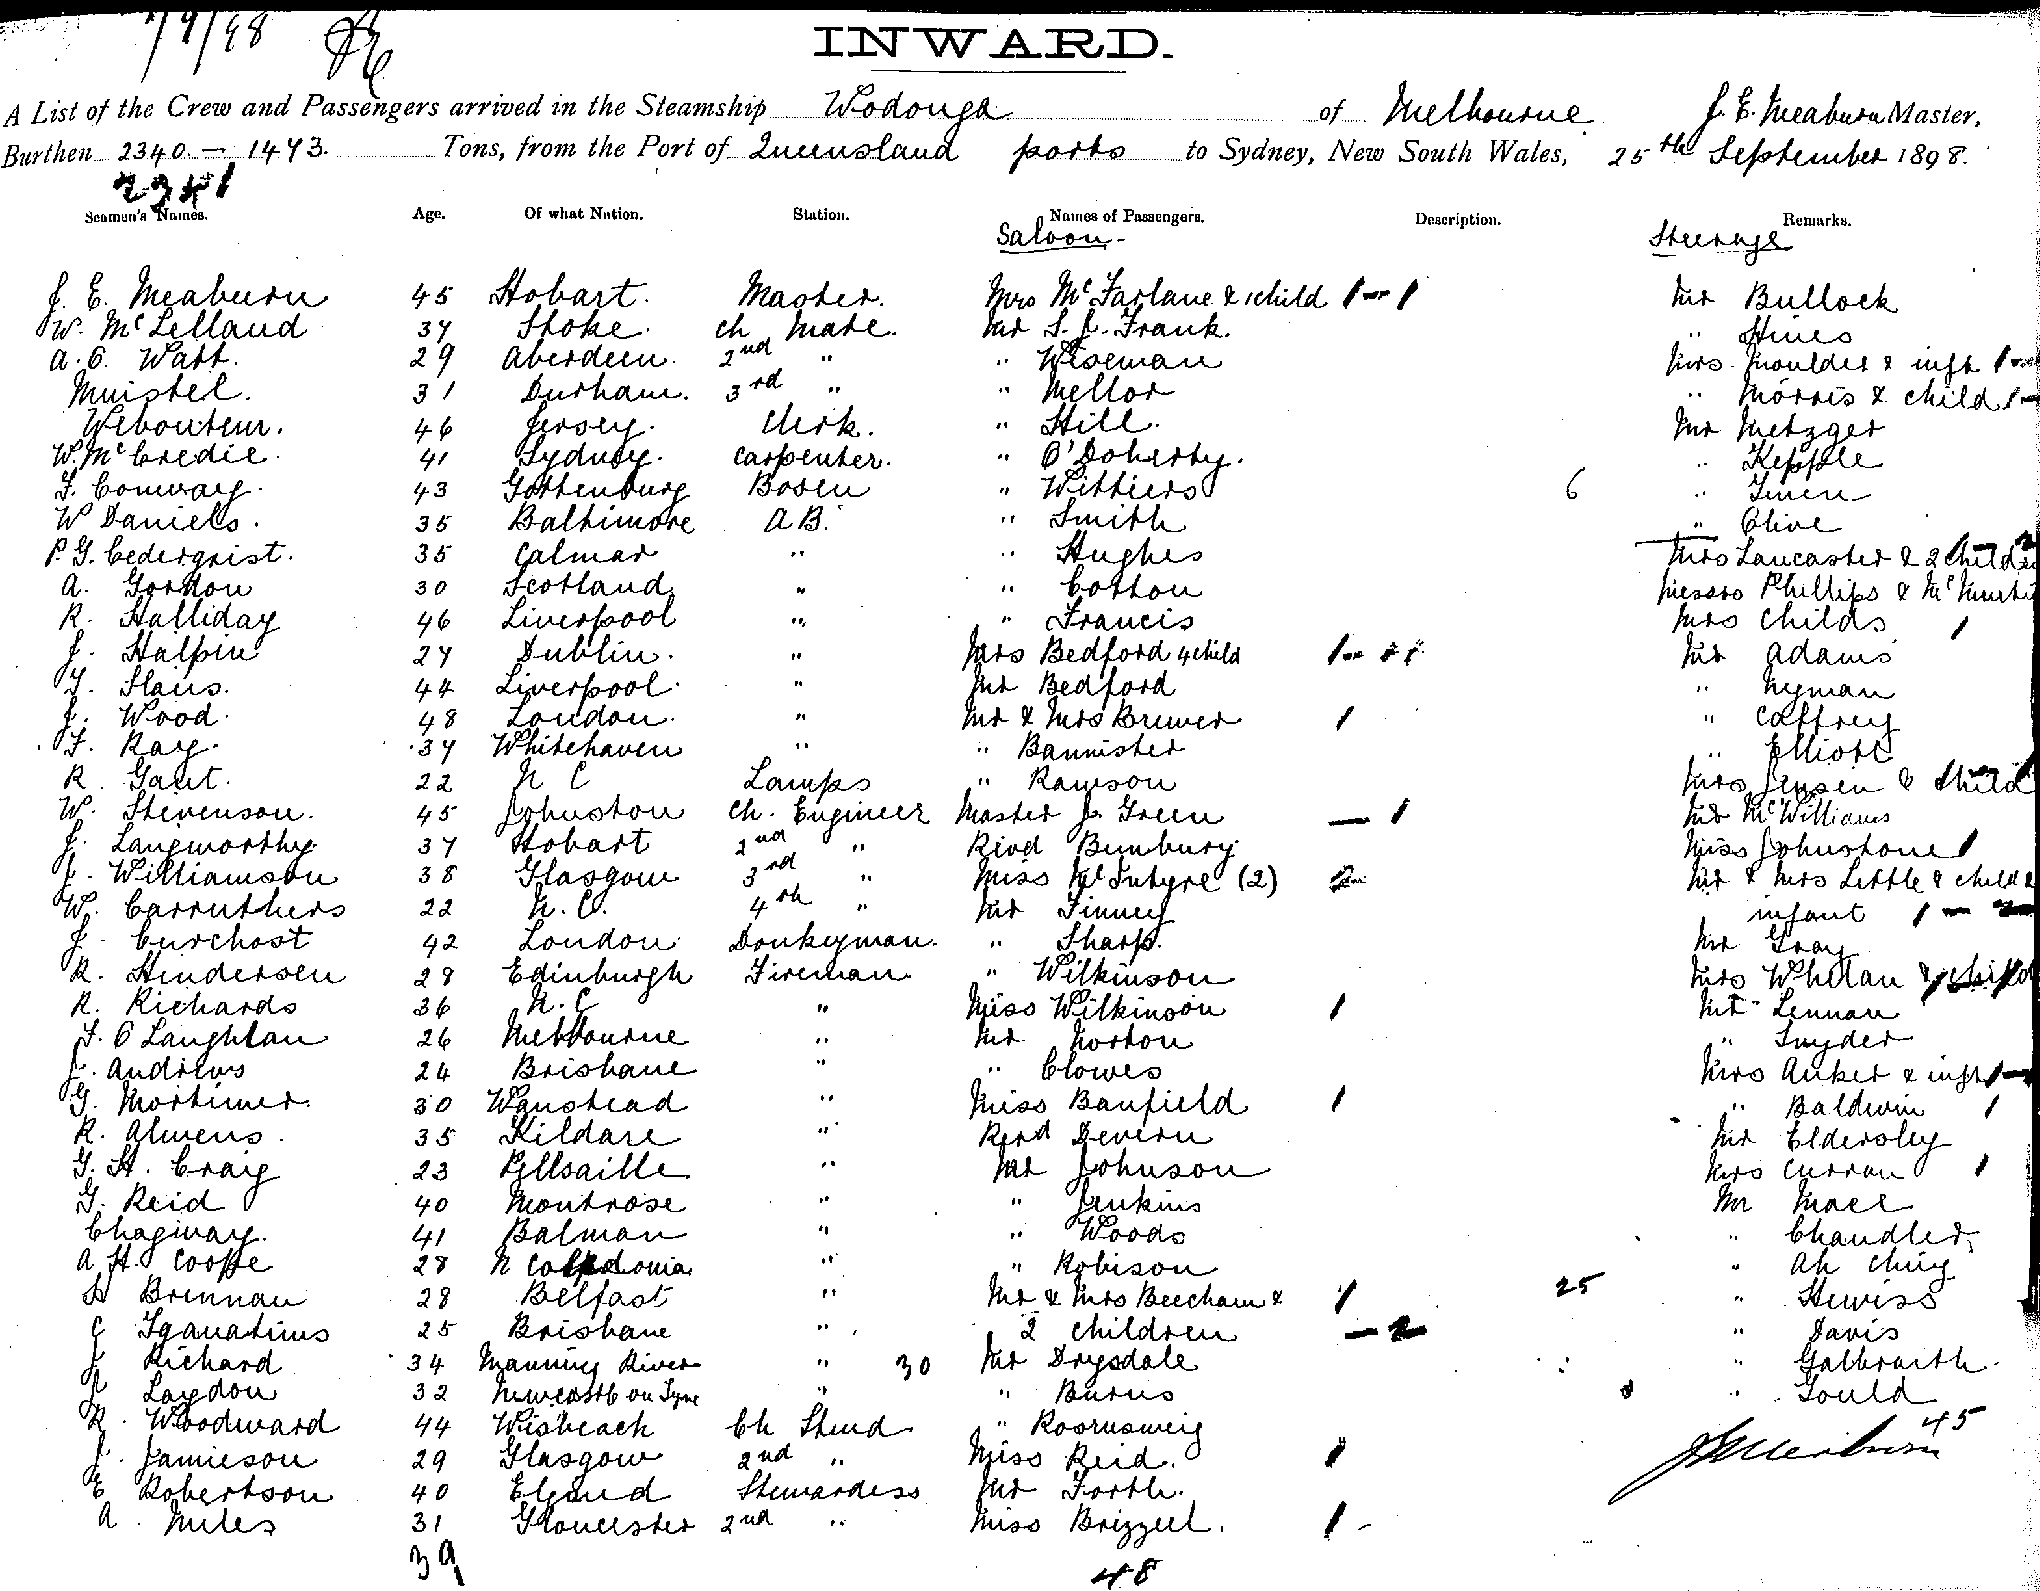 7/9/98
INWARD.
A List of the Crew and Passengers arrived in the Steamship Wodonga of Melbourne J. E. Meaburn Master,
Burthen 2340 - 1473. Tons, from the Port of Queensland ports to Sydney, New South Wales, 25th September 1898.
2341
Seamen's Names. Age. Of what Nation. Station. Names of Passengers. Description. Remarks.
Saloon - Steerage
J. E. Meaburn 45 Hobart. Master. Mrs McFarlane & 1 child 1 - 1 Mr Bullock
W. McLelland 37 Stoke. Ch Mate. Mr S. J. Frank. " Hines
A. O. Watt. 29 Aberdeen. 2nd " " Wiseman Mrs Moulder & inft 1 -
Muistel. 31 Durham. 3rd " " Mellor " Morris & child 1 -
Webouteur. 46 Jersey. Clerk. " Hill. Mr Metzger
W. McCredie. 41 Sydney. Carpenter. " O'Doherty. " Kepple
F. Conway. 43 Gottenburg Bosen " Wittiers 6 "
W Daniels. 35 Baltimore A B. " Smith " Clive
P. G. Cederqvist. 35 Calmar " " Hughes Mrs Lancaster & 2 Childn
A. Gordon 30 Scotland " " Cotton Messrs Phillips &
R. Halliday 46 Liverpool " " Francis Mrs Childs 1
J. Halpin 27 Dublin. " Mrs Bedford 4 child Mr Adams
T. Slaus. 44 Liverpool. " Mr Bedford " Nyman
J. Wood. 48 London. " Mr & Mrs Brewer 1 " Caffrey
F. Ray. 37 Whitehaven " " Bannister " Elliott
R. Gaut. 22 N C Lamps " Ramson Mrs Jensen & child
W. Stevenson. 45 Johnston Ch. Engineer Master J. Green - 1 Mr McWilliams
J. Langworthy 37 Hobart 2nd " Revd Bunbury Miss Johnstone 1
J. Williamson 38 Glasgow 3rd " Miss McIntyre (2) 2 Mr & Mrs Little & child &
W. Carruthers 22 N. C. 4th " Mr Finney infant 1 - 2
J. Curchost 42 London Donkeyman. " Sharp. Mr Gray
R. Hindersen 28 Edinburgh Fireman " Wilkinson Mrs Whelan & child
R. Richards 36 N. C " Miss Wilkinson 1 Mr Lennan
F. O Laughlan 26 Melbourne " Mr Norton " Snyder
J. Andrews 24 Brisbane " " Clowes Mrs Anker & inft 1 -
G. Mortimer. 30 Wanstead " Miss Banfield 1 " Baldwin 1
R. Alwens. 35 Kildare " Revd Devern Mr Eldersley
G. H. Craig 23 Pellsaille " Mr Johnson Mrs Curran 1
G. Reid 40 Montrose " " Jenkins Mr Mace
Chagway. 41 Balman " " Woods " Chandler
A. H. Coope 28 N Caledonia " " Robison " Ah Ching
Brennan 28 Belfast " Mr & Mrs Beecham & 1 25 " Hewiss
C Iganatius 25 Brisbane " 2 children - 2 " Davis
J Richard 34 Manning River " 30 Mr Drysdale " Galbraith.
J Laydon 32 Newcastle on Tyne " " Burns " Gould
R. Woodward 44 Wisbeach Ch Stewd " Rosrusweig 45
J. Jamieson 29 Glasgow 2nd " Miss Reid. 1 J E Meaburn
E Robertson 40 Elgund Stewardess Mr Forth.
A. Miles 31 Gloucester 2nd " Miss Brizzell. 1 -
39 48